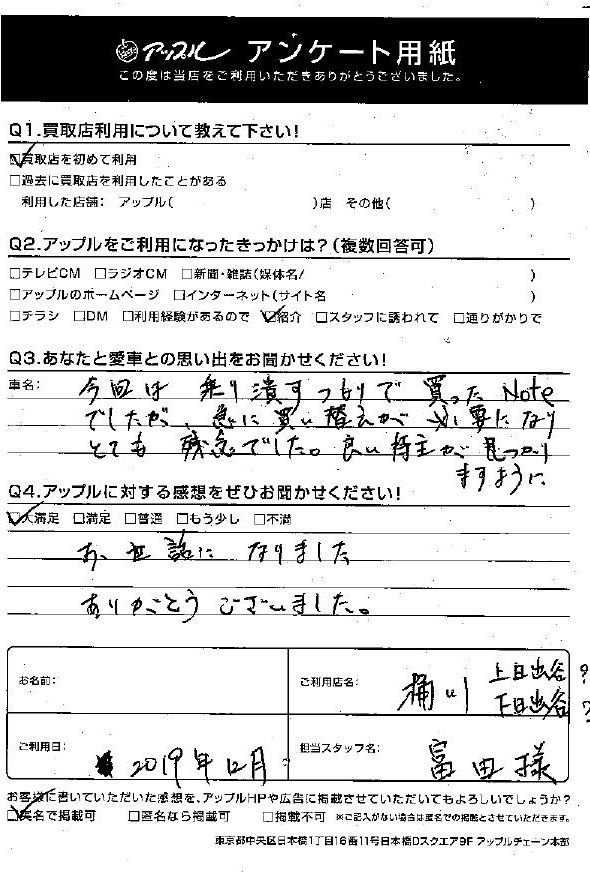 アップル アンケート用紙
この度は当店をご利用いただきありがとうございました。
Q1.買取店利用について教えて下さい!
☑買取店を初めて利用
□過去に買取店を利用したことがある
利用した店舗: アップル( )店 その他( )
Q2.アップルをご利用になったきっかけは?(複数回答可)
□テレビCM □ラジオCM □新聞・雑誌(媒体名/ )
□アップルのホームページ □インターネット(サイト名 )
□チラシ □DM □利用経験があるので ☑紹介 □スタッフに誘われて □通りがかりで
Q3.あなたと愛車との思い出をお聞かせください!
車名: 今回は 乗り潰すつもりで 買った Note
でしたが、急に買い替えが 必要になり
とても 残念でした。良い持主が見つかり
ますように
Q4.アップルに対する感想をぜひお聞かせください!
☑大満足 □満足 □普通 □もう少し □不満
お世話に なりました
ありがとう ございました。
お名前:
ご利用店名: 桶川 上日出谷?
下日出谷?
ご利用日: 2019年12月
担当スタッフ名: 冨田様
お客様に書いていただいた感想を、アップルHPや広告に掲載させていただいてもよろしいでしょうか?
☑実名で掲載可 □匿名なら掲載可 □掲載不可 ※ご記入がない場合は匿名での掲載とさせていただきます。
東京都中央区日本橋1丁目16番11号日本橋Dスクエア9F アップルチェーン本部